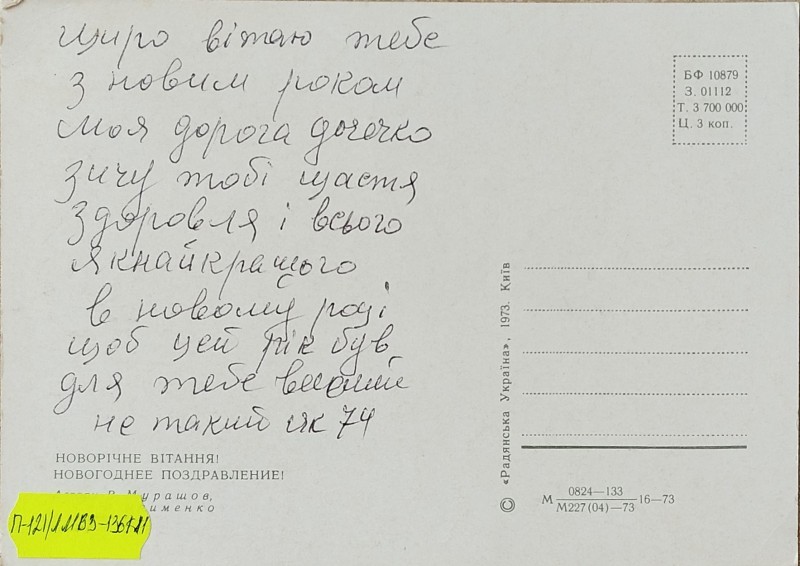 Щиро вітаю тебе
з новим роком
моя дорога дочечко
зичу тобі щастя
здоровля і всього
якнайкращого
в новому році
щоб цей рік був
для тебе
не такий як 74
НОВОРІЧНЕ ВІТАННЯ!
НОВОГОДНЕЕ ПОЗДРАВЛЕНИЕ!
В. Мурашов,
БФ 10879
З. 01112
Т. 3 700 000
Ц. 3 коп.
© «Радянська Україна», 1973. Київ
М 0824—133 16—73
М227(04)—73